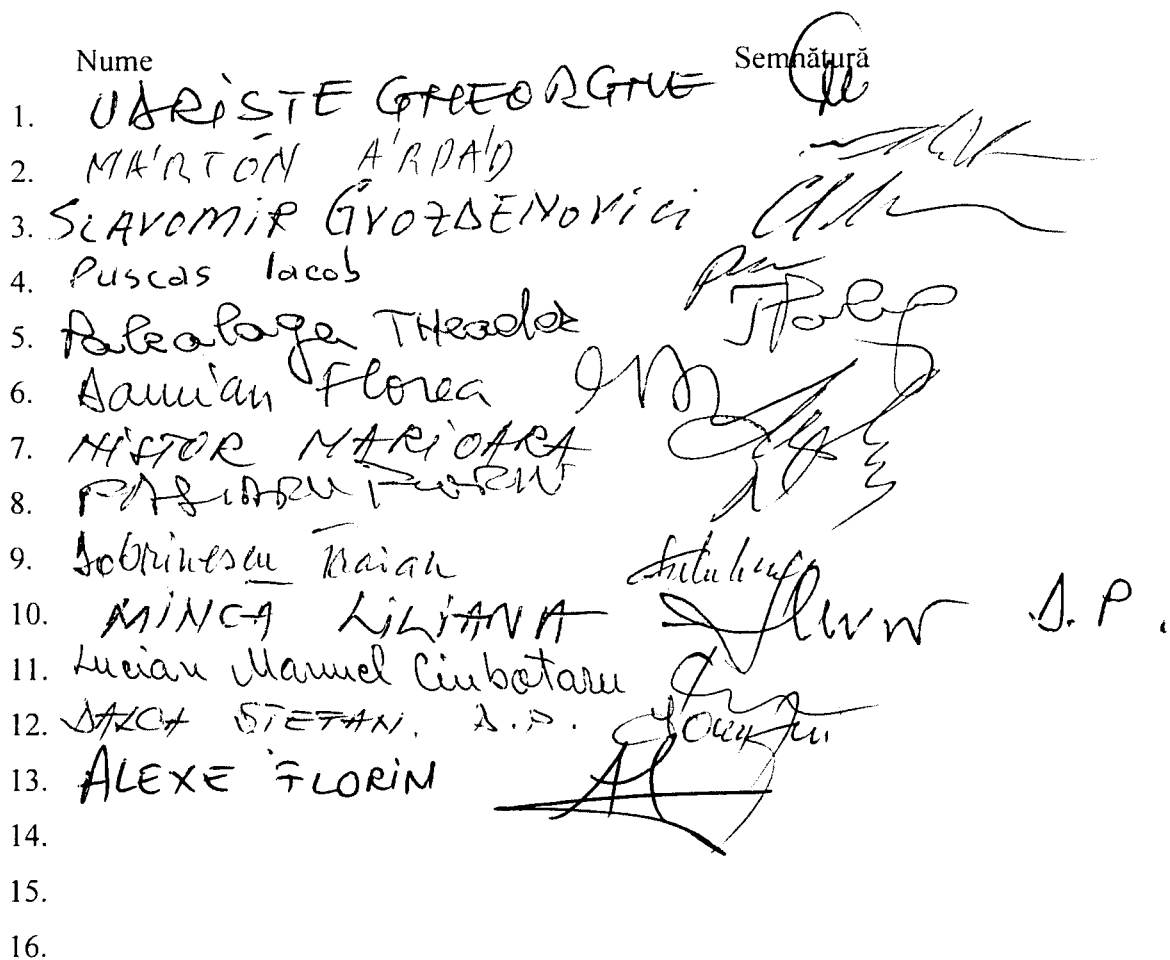 Nume Semnătură
1. UARISTE GHEORGHE
2. MÁRTON ÁRPÁD
3. SLAVOMIR GVOZDENOVICI
4. Puscas Iacob
5. Paleologu THeodor
6. Damian Florea
7. NISTOR MARIOARA
8. PASLARU FLORIN
9. Dobrinescu Traian
10. MINCA LILIANA D.P.
11. Lucian Manuel Ciubotaru
12. DALCA STEFAN. D.P.
13. ALEXE FLORIN
14.
15.
16.